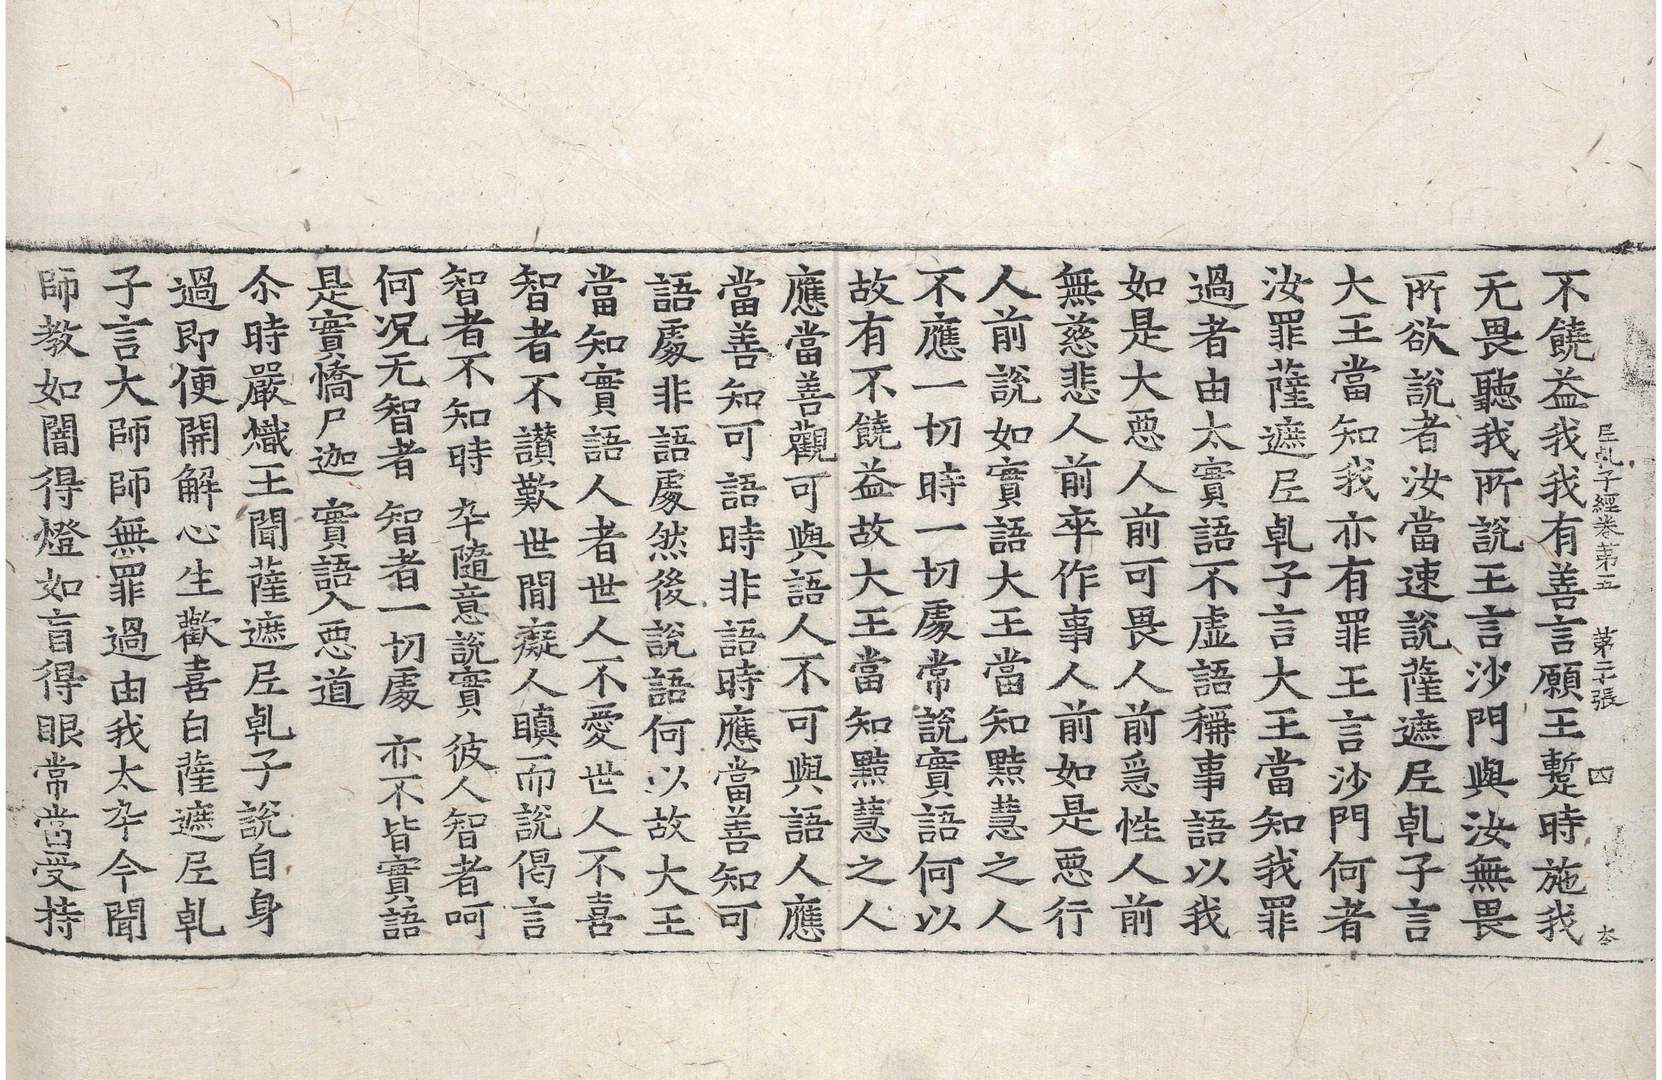 尼乹子經卷第五　第二十張　四　本
不饒益我我有善言願王蹔時施我
无畏聽我所說王言沙門與汝無畏
所欲說者汝當速說薩遮尼乹子言
大王當知我亦有罪王言沙門何者
汝罪薩遮尼乹子言大王當知我罪
過者由太實語不虛語稱事語以我
如是大惡人前可畏人前急性人前
無慈悲人前卒作事人前如是惡行
人前說如實語大王當知黠慧之人
不應一切時一切處常說實語何以
故有不饒益故大王當知黠慧之人
應當善觀可與語人不可與語人應
當善知可語時非語時應當善知可
語處非語處然後說語何以故大王
當知實語人者世人不愛世人不喜
智者不讃歎世間癡人瞋而說偈言
智者不知時　卒隨意說實　彼人智者呵
何況无智者　智者一切處　亦不皆實語
是實憍尸迦　實語入惡道
尒時嚴熾王聞薩遮尼乹子說自身
過即便開解心生歡喜白薩遮尼乹
子言大師師無罪過由我太卒今聞
師教如闇得燈如盲得眼常當受持